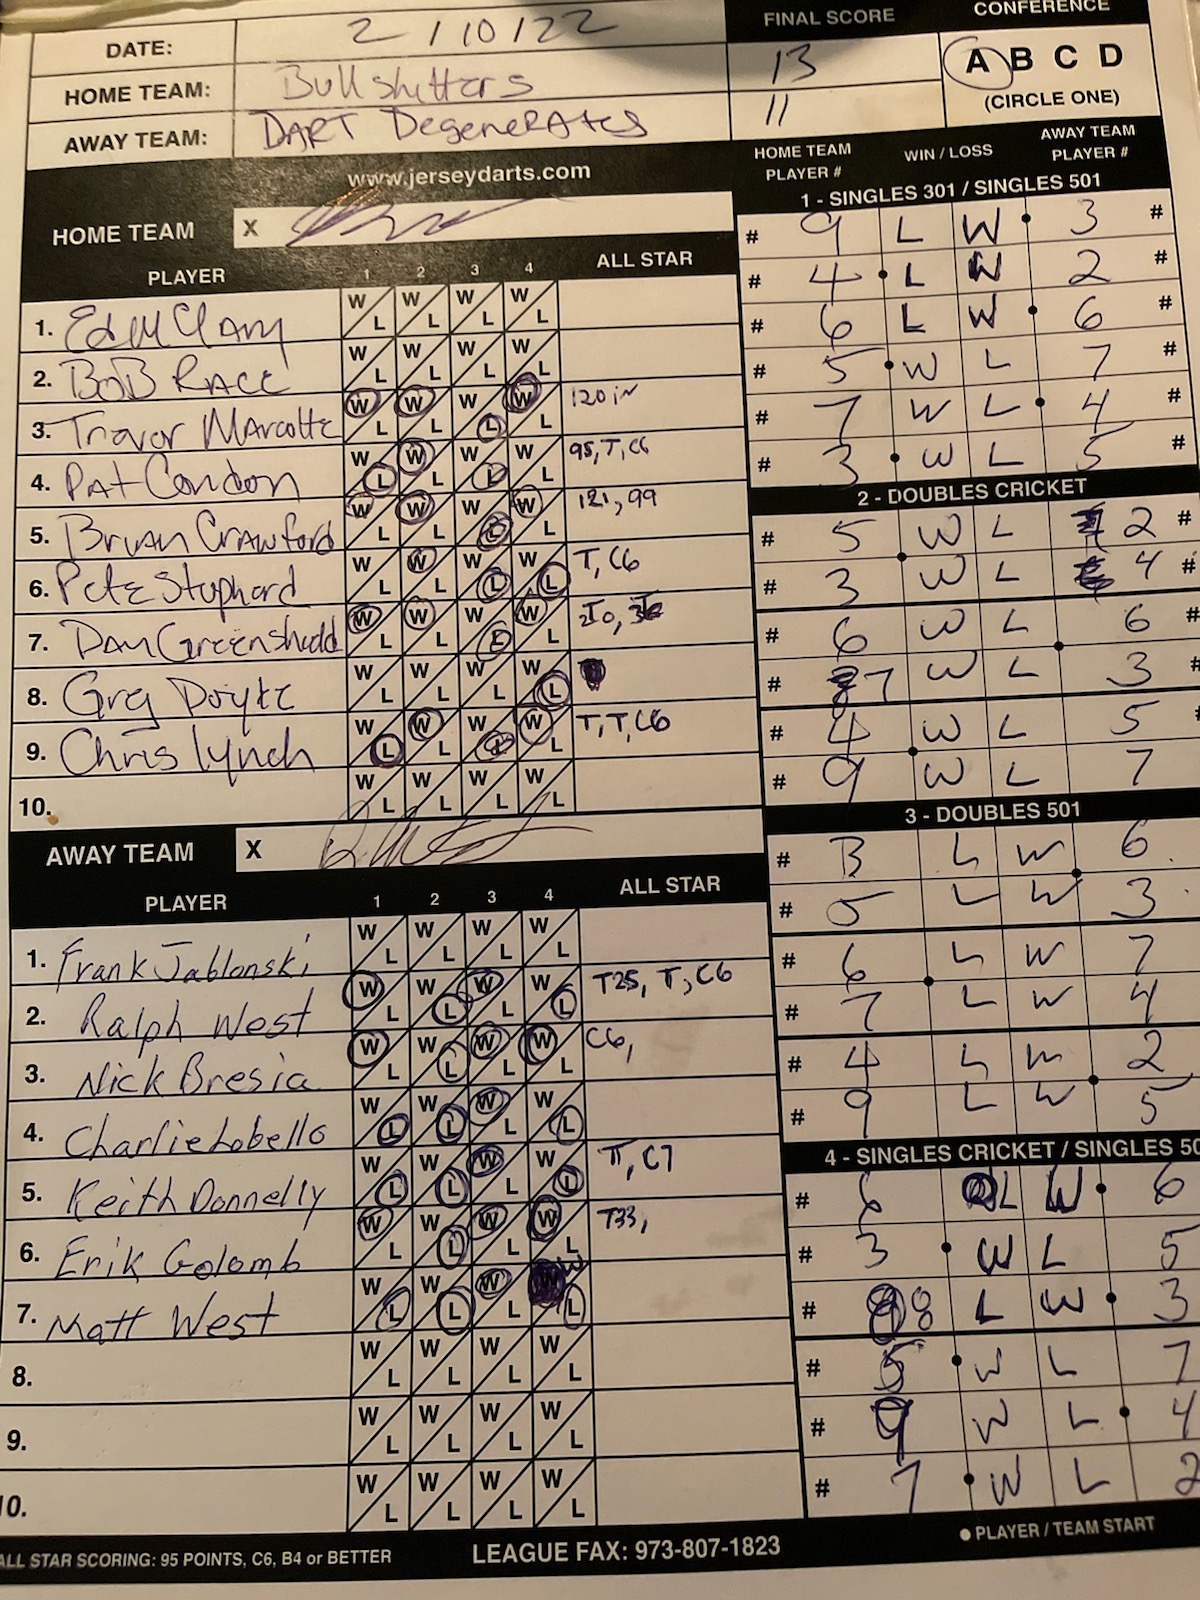 DATE: 2/10/22
HOME TEAM: Bullshitters
AWAY TEAM: DART DegeneRAtes
FINAL SCORE
13
11
CONFERENCE
A B C D
(CIRCLE ONE)
www.jerseydarts.com
HOME TEAM X
PLAYER 1 2 3 4 ALL STAR
1. Ed McClary W L W L W L W L
2. BOB RACE W L W L W L W L
3. Trevor Marcotte W L W L W L W L 120 in
4. PAt Condon W L W L W L W L 95, T, C6
5. Brian Crawford W L W L W L W L 121, 99
6. Pete Stuphard W L W L W L W L T, C6
7. Dan Greenshedd W L W L W L W L
8. Greg Doyle W L W L W L W L
9. Chris Lynch W L W L W L W L T, T, C6
10. W L W L W L W L
AWAY TEAM X
PLAYER 1 2 3 4 ALL STAR
1. Frank Jablonski W L W L W L W L
2. Ralph West W L W L W L W L T25, T, C6
3. Nick Bresia W L W L W L W L C6,
4. Charlie Lobello W L W L W L W L
5. Keith Donnelly W L W L W L W L T, C7
6. Erik Golomb W L W L W L W L T33,
7. Matt West W L W L W L W W L
8. W L W L W L W L
9. W L W L W L W L
10. W L W L W L W L
ALL STAR SCORING: 95 POINTS, C6, B4 or BETTER
LEAGUE FAX: 973-807-1823
HOME TEAM PLAYER # WIN / LOSS AWAY TEAM PLAYER #
1 - SINGLES 301 / SINGLES 501
# 9 L W 3 #
# 4 L W 2 #
# 6 L W 6 #
# 5 W L 7 #
# 7 W L 4 #
# 3 W L 5 #
2 - DOUBLES CRICKET
# 5 W L 2 #
# 3 W L 4 #
# 6 W L 6 #
# 7 W L 3 #
# 4 W L 5 #
# 9 W L 7
3 - DOUBLES 501
# 3 L W 6
# 5 L W 3
# 6 L W 7
# 7 L W 4
# 4 L W 2
# 9 L W 5
4 - SINGLES CRICKET / SINGLES 50
# 6 L W 6
# 3 W L 5
# 8 L W 3
# 5 W L 7
# 9 W L 4
# 7 W L 2
PLAYER / TEAM START